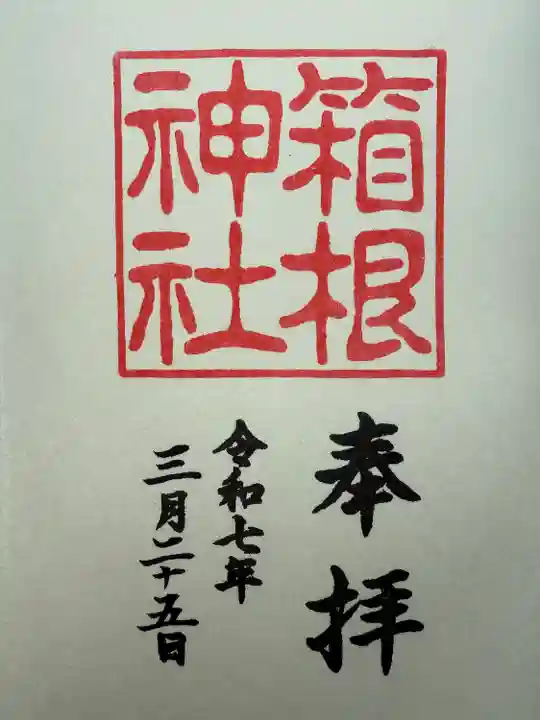 箱根
神社
奉拝
令和七年
三月二十五日